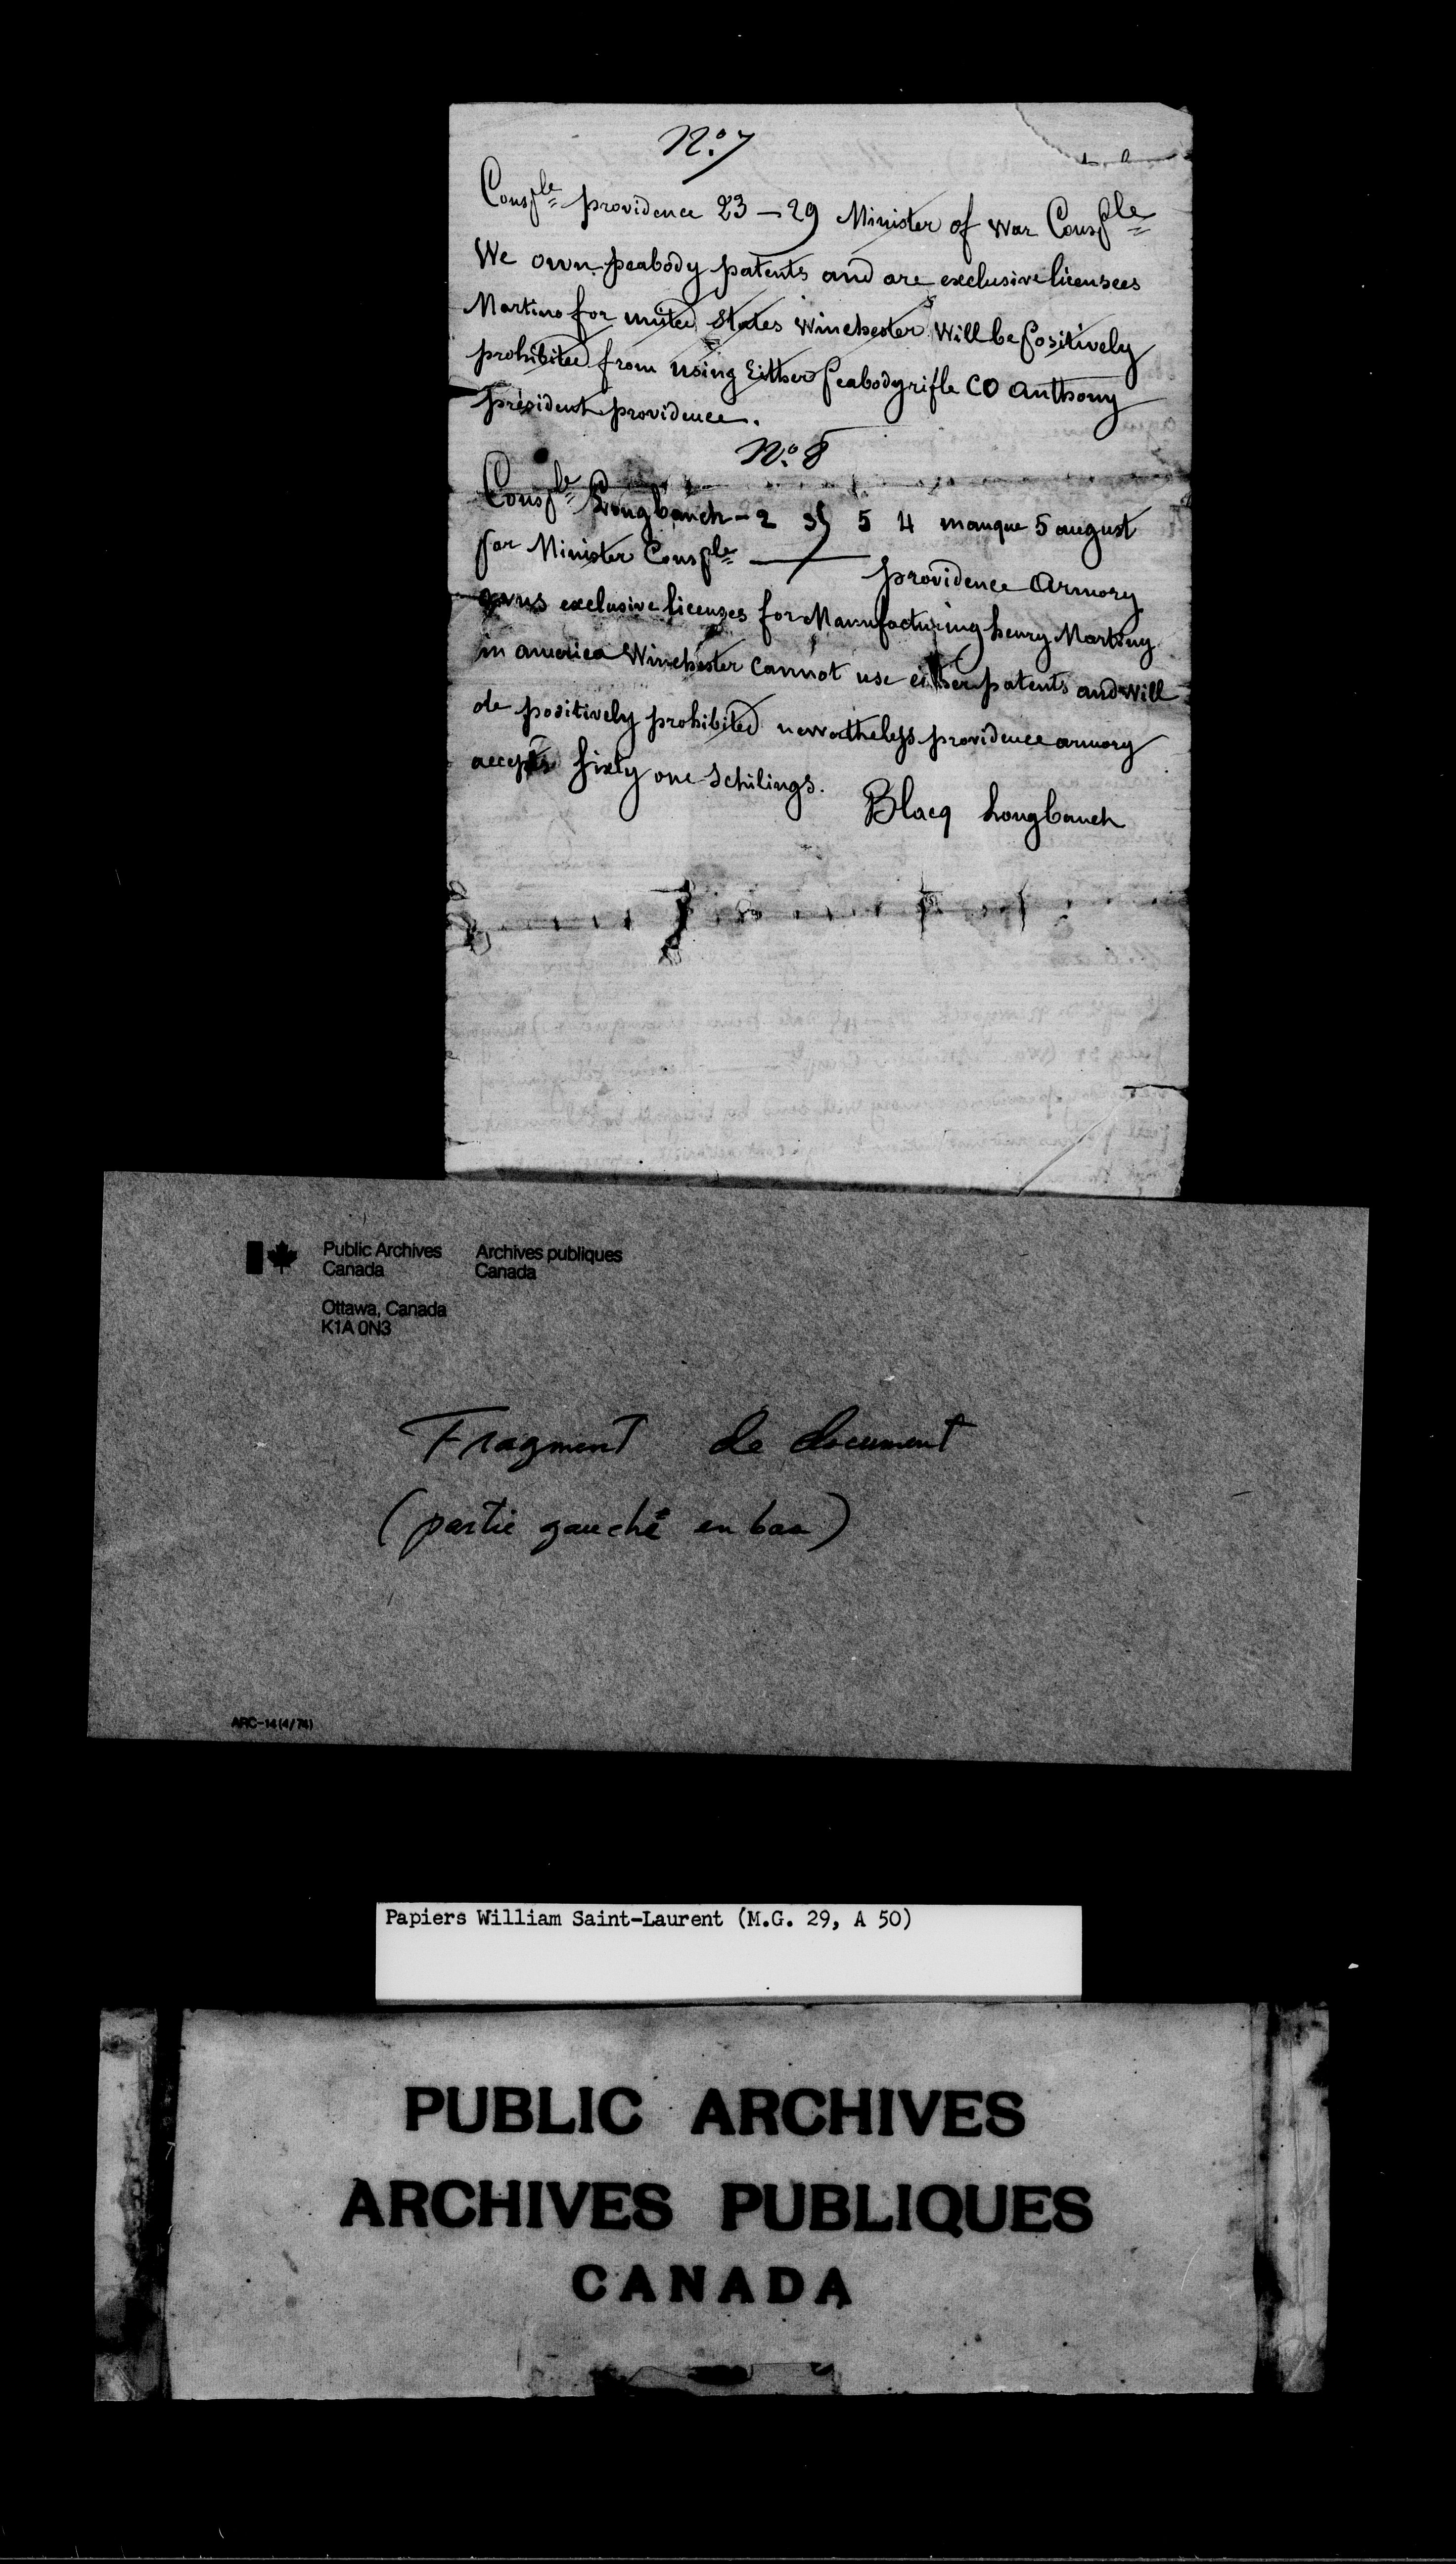 No. 7
Consple providence 23 — 29 Minister of war Consple
We own peabody patents and are exclusive licensees
Martino for united states Winchester will be positively
prohibited from using Either peabody rifle CO anthony
president providence.
No. 8
Consple Longbanch - 2 35 5 4 manque 5 august
for Minister Consple — providence Armory
owns exclusive licenses for Manufacturing henry Martiny
in america Winchester cannot use either patents and will
de positively prohibited nevertheless providence armory
accepts sixty one schilings.
Blacq Longbanch
Public Archives Canada
Archives publiques Canada
Ottawa, Canada
K1A 0N3
Fragment de document
(partie gauche en bas)
ARC-14 (4/74)
Papiers William Saint-Laurent (M.G. 29, A 50)
PUBLIC ARCHIVES
ARCHIVES PUBLIQUES
CANADA